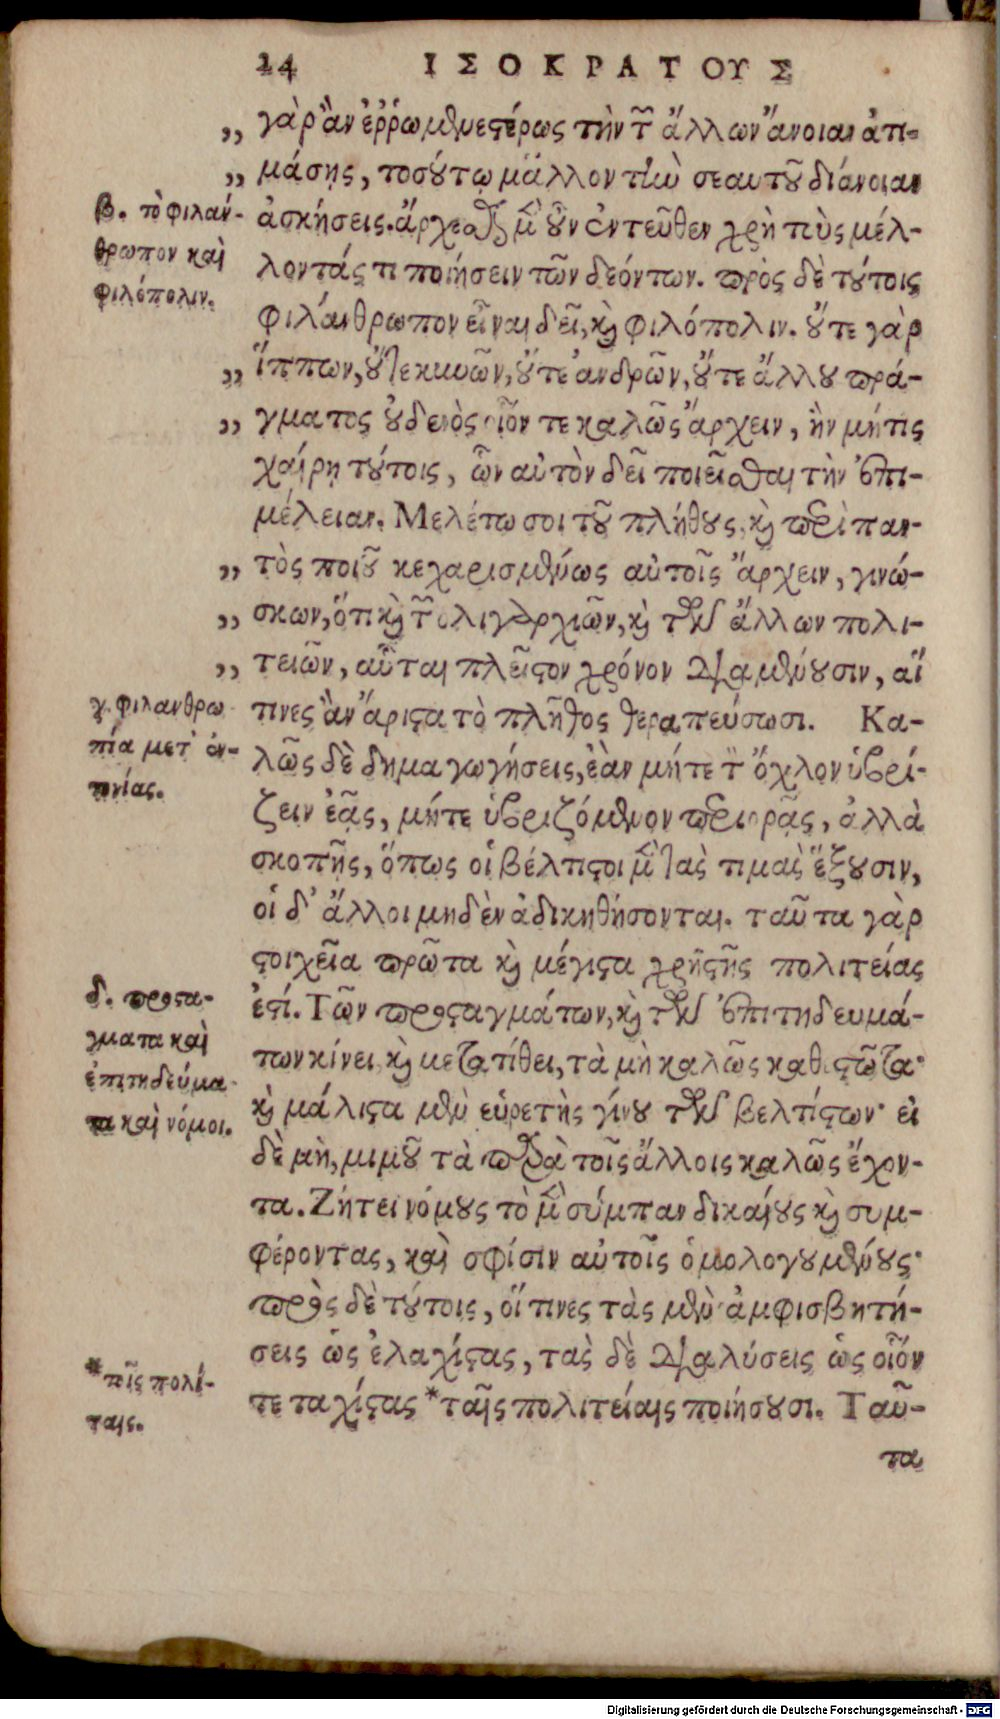 14 ΙΣΟΚΡΑΤΟΥΣ
„ γὰρ ἂν ἐῤῥωμενεστέρως τὴν τῶν ἄλλων ἄνοιαν ἀτι-
„ μάσῃς, τοσούτῳ μᾶλλον τὴν σεαυτοῦ διάνοιαν
β. τὸ φιλάν-
θρωπον καὶ
φιλόπολιν.
ἀσκήσεις. ἄρχεσθαι μὲν οὖν ἐντεῦθεν χρὴ τοὺς μέλ-
λοντάς τι ποιήσειν τῶν δεόντων. πρὸς δὲ τούτοις
φιλάνθρωπον εἶναι δεῖ, καὶ φιλόπολιν. οὔτε γὰρ
„ ἵππων, οὔτε κυνῶν, οὔτε ἀνδρῶν, οὔτε ἄλλου πρά-
„ γματος οὐδενὸς οἷόν τε καλῶς ἄρχειν, ἢν μή τις
χαίρῃ τούτοις, ὧν αὐτὸν δεῖ ποιεῖσθαι τὴν ἐπι-
μέλειαν. Μελέτω σοι τοῦ πλήθους, καὶ περὶ παν-
„ τὸς ποιοῦ κεχαρισμένως αὐτοῖς ἄρχειν, γινώ-
„ σκων, ὅτι καὶ τῶν ὀλιγαρχιῶν, καὶ τῶν ἄλλων πολι-
„ τειῶν, αὗται πλεῖστον χρόνον διαμένουσιν, αἵ
γ. φιλανθρω
πία μετ' εὐ-
τονίας.
τινες ἂν ἄριστα τὸ πλῆθος θεραπεύσωσι. Κα-
λῶς δὲ δημαγωγήσεις, ἐὰν μήτε τὸν ὄχλον ὑβρί-
ζειν ἐᾷς, μήτε ὑβριζόμενον περιορᾷς, ἀλλὰ
σκοπῇς, ὅπως οἱ βέλτιστοι μὲν τὰς τιμὰς ἕξουσιν,
οἱ δ' ἄλλοι μηδὲν ἀδικηθήσονται. ταῦτα γὰρ
στοιχεῖα πρῶτα καὶ μέγιστα χρηστῆς πολιτείας
δ. προστά-
γματα καὶ
ἐπιτηδεύμα-
τα καὶ νόμοι.
ἐστί. Τῶν προσταγμάτων, καὶ τῶν ἐπιτηδευμά-
των κίνει, καὶ μετατίθει, τὰ μὴ καλῶς καθεστῶτα·
καὶ μάλιστα μὲν εὑρετὴς γίνου τῶν βελτίστων· εἰ
δὲ μὴ, μιμοῦ τὰ παρὰ τοῖς ἄλλοις καλῶς ἔχον-
τα. Ζήτει νόμους τὸ μὲν σύμπαν δικαίους καὶ συμ-
φέροντας, καὶ σφίσιν αὐτοῖς ὁμολογουμένους·
πρὸς δὲ τούτοις, οἵ τινες τὰς μὲν ἀμφισβητή-
σεις ὡς ἐλαχίστας, τὰς δὲ διαλύσεις ὡς οἷόν
* τοῖς πολί-
ταις.
τε ταχίστας * ταῖς πολιτείαις ποιήσουσι. Ταῦ-
τα
Digitalisierung gefördert durch die Deutsche Forschungsgemeinschaft - DFG